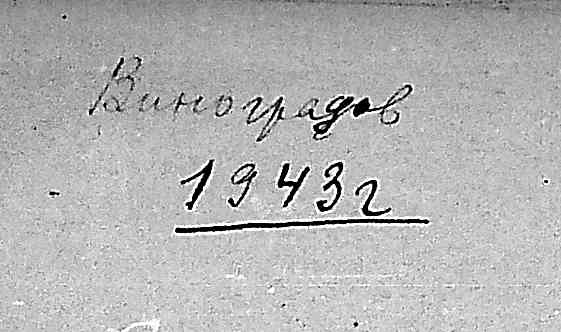 Виноградов
1943г